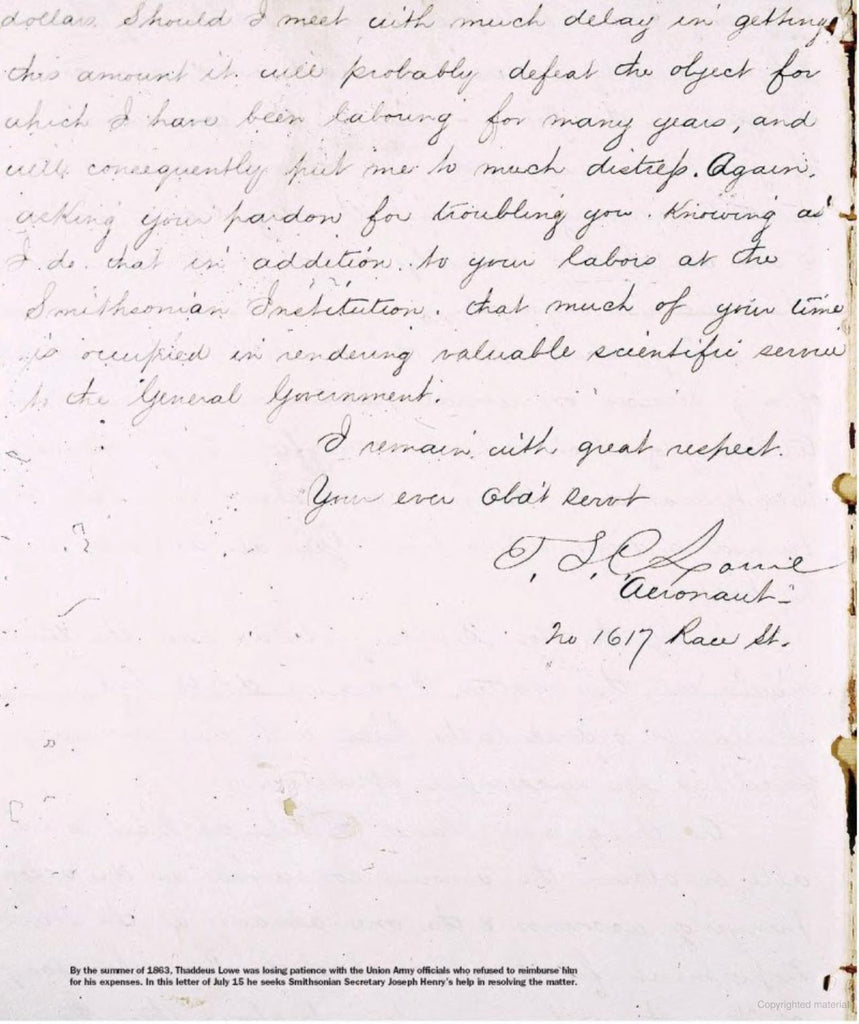 dollars Should I meet with much delay in getting
this amount it will probably defeat the object for
which I have been labouing for many years, and
will consequently put me to much distress. Again,
asking your pardon for troubling you. Knowing as
I do. that in addetion. to your labors at the
Smithsonian Institution. that much of your time
is ocupied in rendering valuable scientific service
to the General Government.
I remain with great respect.
Your ever Obd't servt
T. S. C. Lowe
Aeronaut-
No 1617 Race St.
By the summer of 1863, Thaddeus Lowe was losing patience with the Union Army officials who refused to reimburse him
for his expenses. In this letter of July 15 he seeks Smithsonian Secretary Joseph Henry's help in resolving the matter.
Copyrighted material